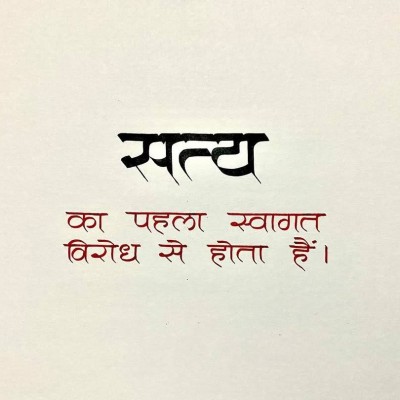 सत्य
का पहला स्वागत
विरोध से होता हैं।